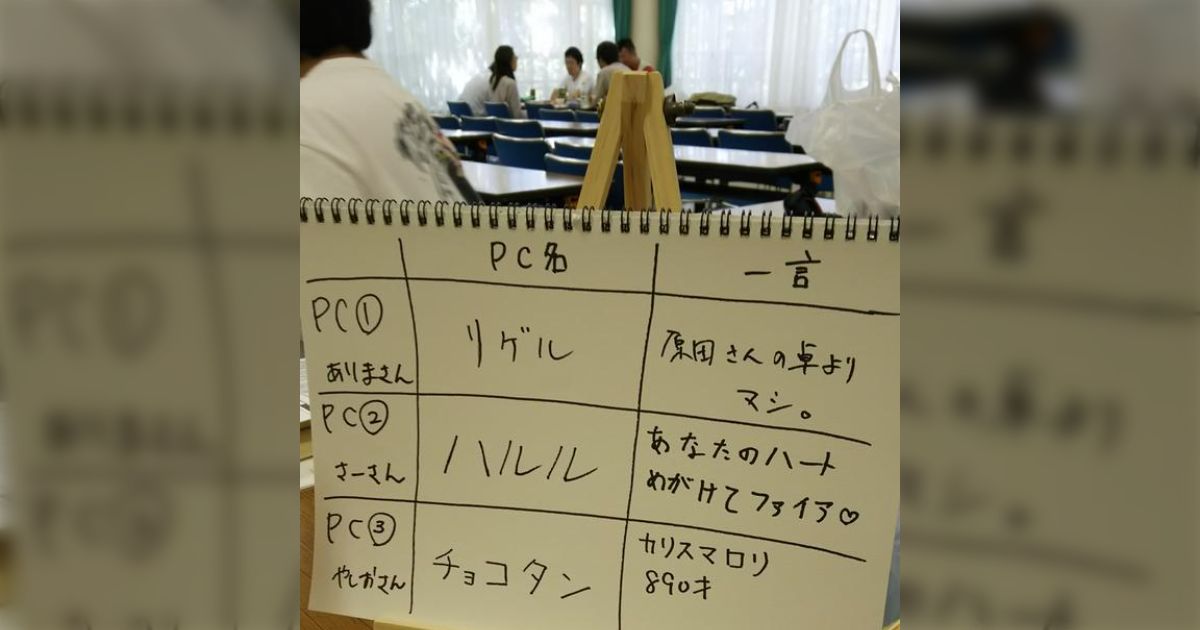 PC名 一言
PC① リゲル 原田さんの卓より
ありまさん マシ。
PC② ハルル あなたのハート
さーさん めがけてファイア♡
PC③ チョコタン カリスマロリ
やしおさん 890才